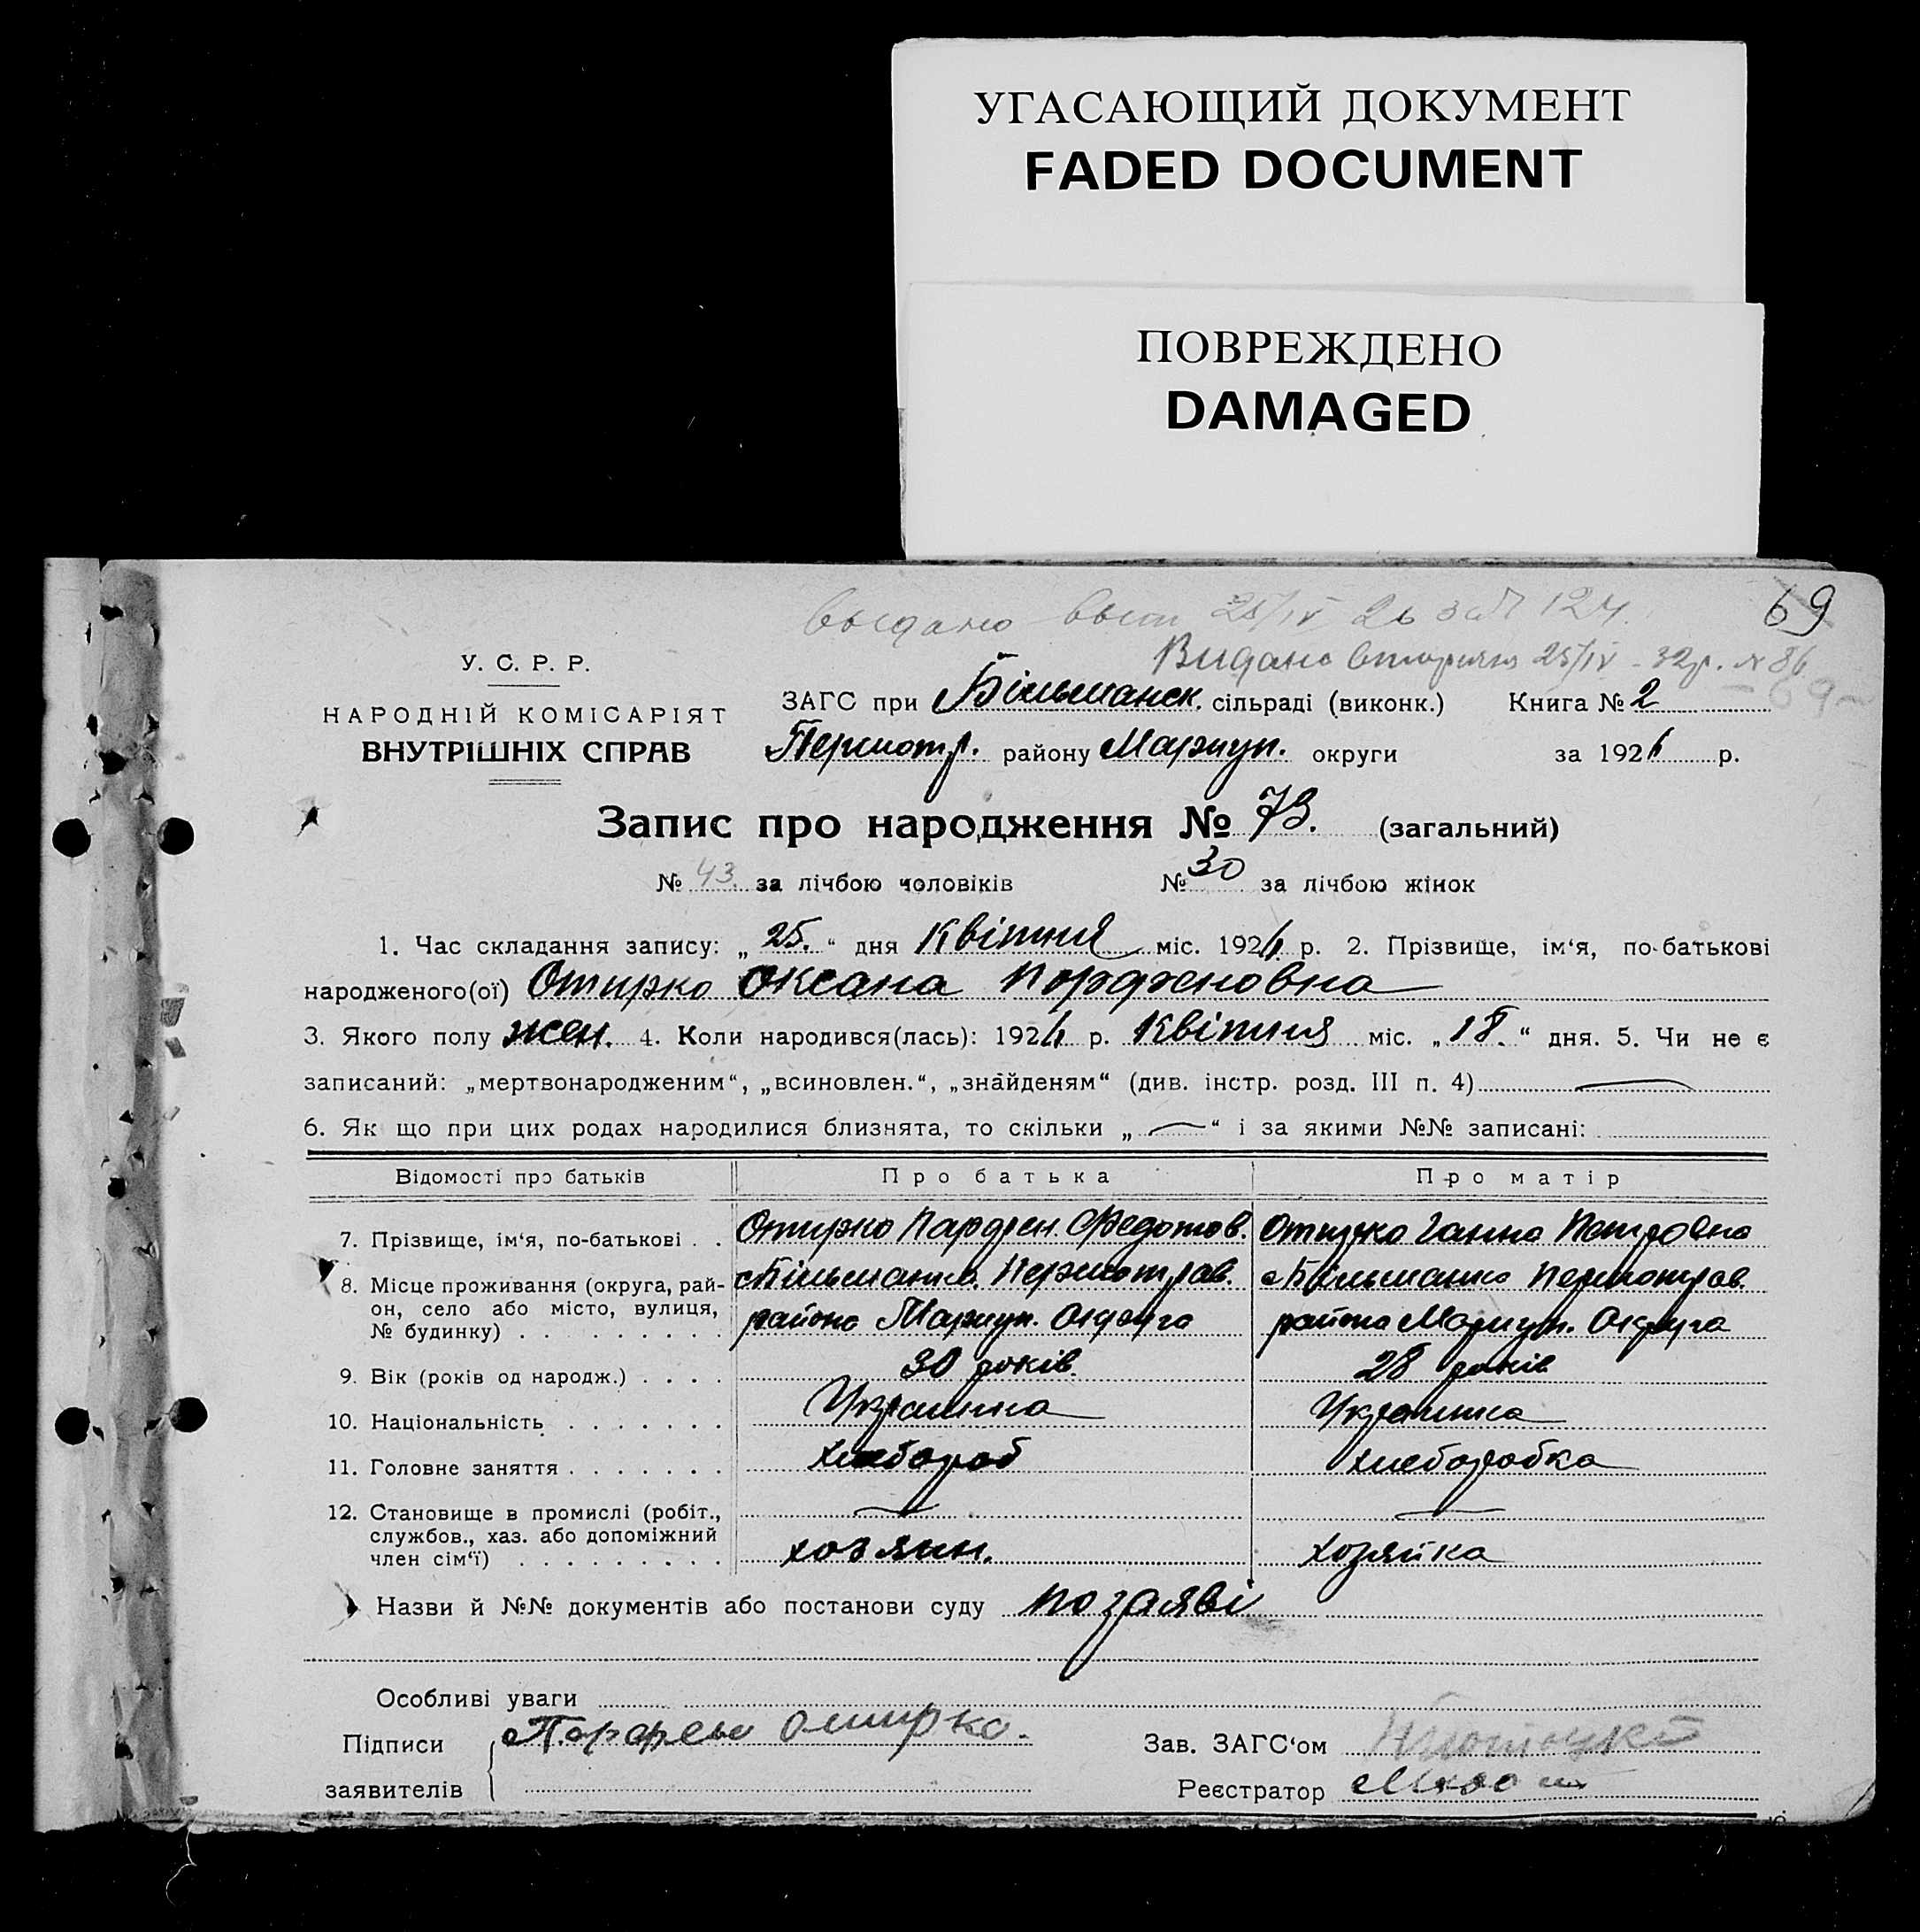 УГАСАЮЩИЙ ДОКУМЕНТ
FADED DOCUMENT
ПОВРЕЖДЕНО
DAMAGED
69
выдано 25/IV 26 124.
Видано 25/IV - 32р. № 86
У. С. Р. Р.
НАРОДНІЙ КОМІСАРІЯТ
ВНУТРІШНІХ СПРАВ
ЗАГС при Більманск. сільраді (виконк.) Книга № 2
района Мариуп. округи за 1926 р.
Запис про народження № 73. (загальний)
№ 43 за лічбою чоловіків № 30 за лічбою жінок
1. Час складання запису: „25.“ дня Квітня міс. 1926 р. 2. Прізвище, ім‘я, по-батькові
народженого(ої) Отирко Оксана Порфеновна
3. Якого полу жен. 4. Коли народився(лась): 1926 р. Квітня міс. „18.“ дня. 5. Чи не є
записаний: „мертвонародженим“, „всиновлен.“, „знайденям“ (див. інстр. розд. III п. 4)
6. Як що при цих родах народилися близнята, то скільки „—“ і за якими №№ записані:
Відомості про батьків Про батька Про матір
7. Прізвище, ім‘я, по-батькові . . Отирко Парфен. Федотов. Отирко Ганна Петровна
8. Місце проживання (округа, рай- с Більманка с Більманка
он, село або місто, вулиця, района Мариуп. Округа района Мариуп. Округа
№ будинку)
9. Вік (років од народж.) . . . . 30 років. 28 років
10. Національність Украинка
11. Головне заняття хлебороб хлеборобка
12. Становище в промислі (робіт., — —
службов., хаз. або допоміжний
член сім‘ї) хозяин. хозяйка
Назви й №№ документів або постанови суду по заяві
Особливі уваги
Підписи Отирко.
заявителів
Зав. ЗАГС‘ом
Реєстратор